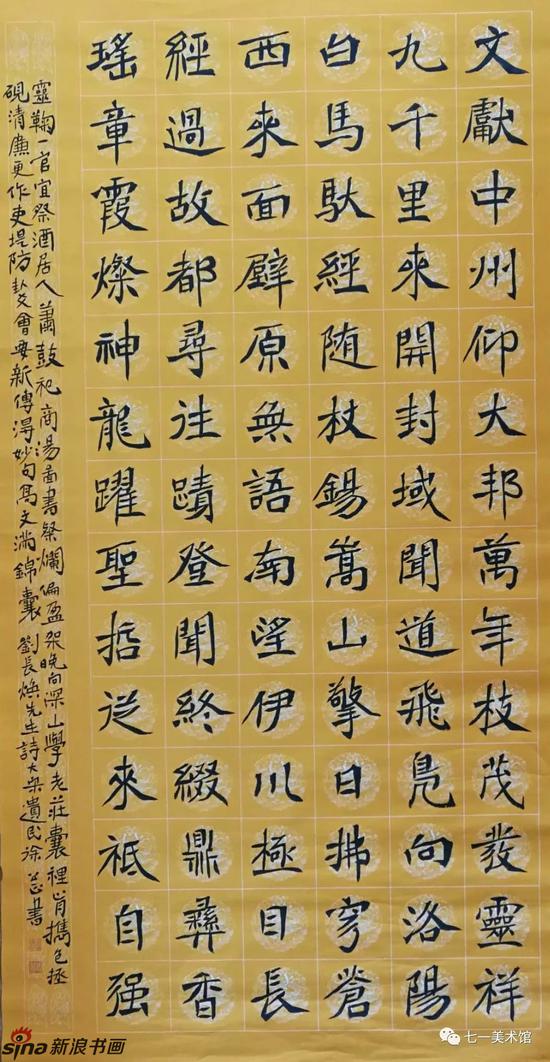 文獻中州仰大邦萬年枝茂發靈祥
九千里來開封域聞道飛鳧向洛陽
白馬馱經随杖錫嵩山擎日拂穹蒼
西來面壁原無語南望伊川極目長
經過故都尋往蹟登聞終綴鼎彝香
瑤章霞燦神龍躍聖哲從來祗自强
靈鞠一官宜祭酒居人蕭鼓祀商湯啚書祭爛偏盈架晚向深山學老莊囊裡肯攜包拯
硯清廉更作吏堤防 會要新傳得妙句高文滿錦囊 劉長煥先生詩大梁遺民徐 書
sina 新浪书画
七一美术馆